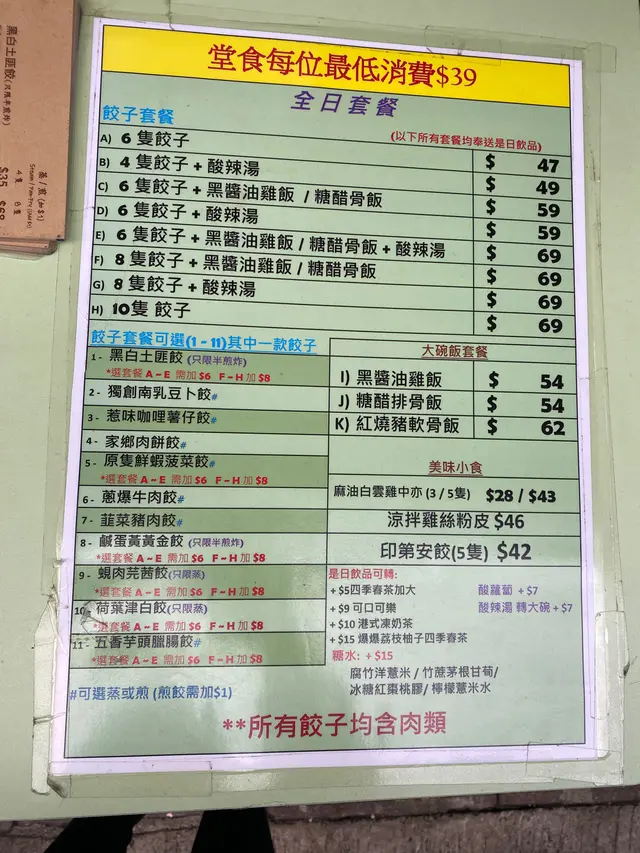 黑白土匪餃(只限半煎炸)
蒸/煎(加$1)
4隻 8隻
$35 $68
堂食每位最低消費$39
全日套餐
餃子套餐
(以下所有套餐均奉送是日飲品)
A) 6 隻餃子 $ 47
B) 4 隻餃子 + 酸辣湯 $ 49
C) 6 隻餃子 + 黑醬油雞飯 / 糖醋骨飯 $ 59
D) 6 隻餃子 + 酸辣湯 $ 59
E) 6 隻餃子 + 黑醬油雞飯 / 糖醋骨飯 + 酸辣湯 $ 69
F) 8 隻餃子 + 黑醬油雞飯 / 糖醋骨飯 $ 69
G) 8 隻餃子 + 酸辣湯 $ 69
H) 10隻 餃子 $ 69
餃子套餐可選(1 - 11)其中一款餃子
1 - 黑白土匪餃 (只限半煎炸)
*選套餐 A – E 需加 $6 F – H 加 $8
2 - 獨創南乳豆卜餃#
3 - 惹味咖哩薯仔餃#
4 - 家鄉肉餅餃#
5 - 原隻鮮蝦菠菜餃#
*選套餐 A – E 需加 $6 F – H 加 $8
6 - 蔥爆牛肉餃#
7 - 韮菜豬肉餃#
8 - 鹹蛋黃黃金餃 (只限半煎炸)
*選套餐 A – E 需加 $6 F – H 加 $8
9 - 蜆肉芫茜餃(只限蒸)
*選套餐 A – E 需加 $6 F – H 加 $8
10 - 荷葉津白餃(只限蒸)
*選套餐 A – E 需加 $6 F – H 加 $8
11 - 五香芋頭臘腸餃#
*選套餐 A – E 需加 $6 F – H 加 $8
#可選蒸或煎 (煎餃需加$1)
大碗飯套餐
I) 黑醬油雞飯 $ 54
J) 糖醋排骨飯 $ 54
K) 紅燒豬軟骨飯 $ 62
美味小食
麻油白雲雞中亦 (3 / 5隻) $28 / $43
涼拌雞絲粉皮 $46
印第安餃(5隻) $42
是日飲品可轉:
+ $5四季春茶加大 酸蘿蔔 + $7
+ $9 可口可樂 酸辣湯 轉大碗 + $7
+ $10 港式凍奶茶
+ $15 爆爆荔枝柚子四季春茶
糖水: + $15
腐竹洋薏米 / 竹蔗茅根甘荀/
冰糖紅棗桃膠/ 檸檬薏米水
**所有餃子均含肉類